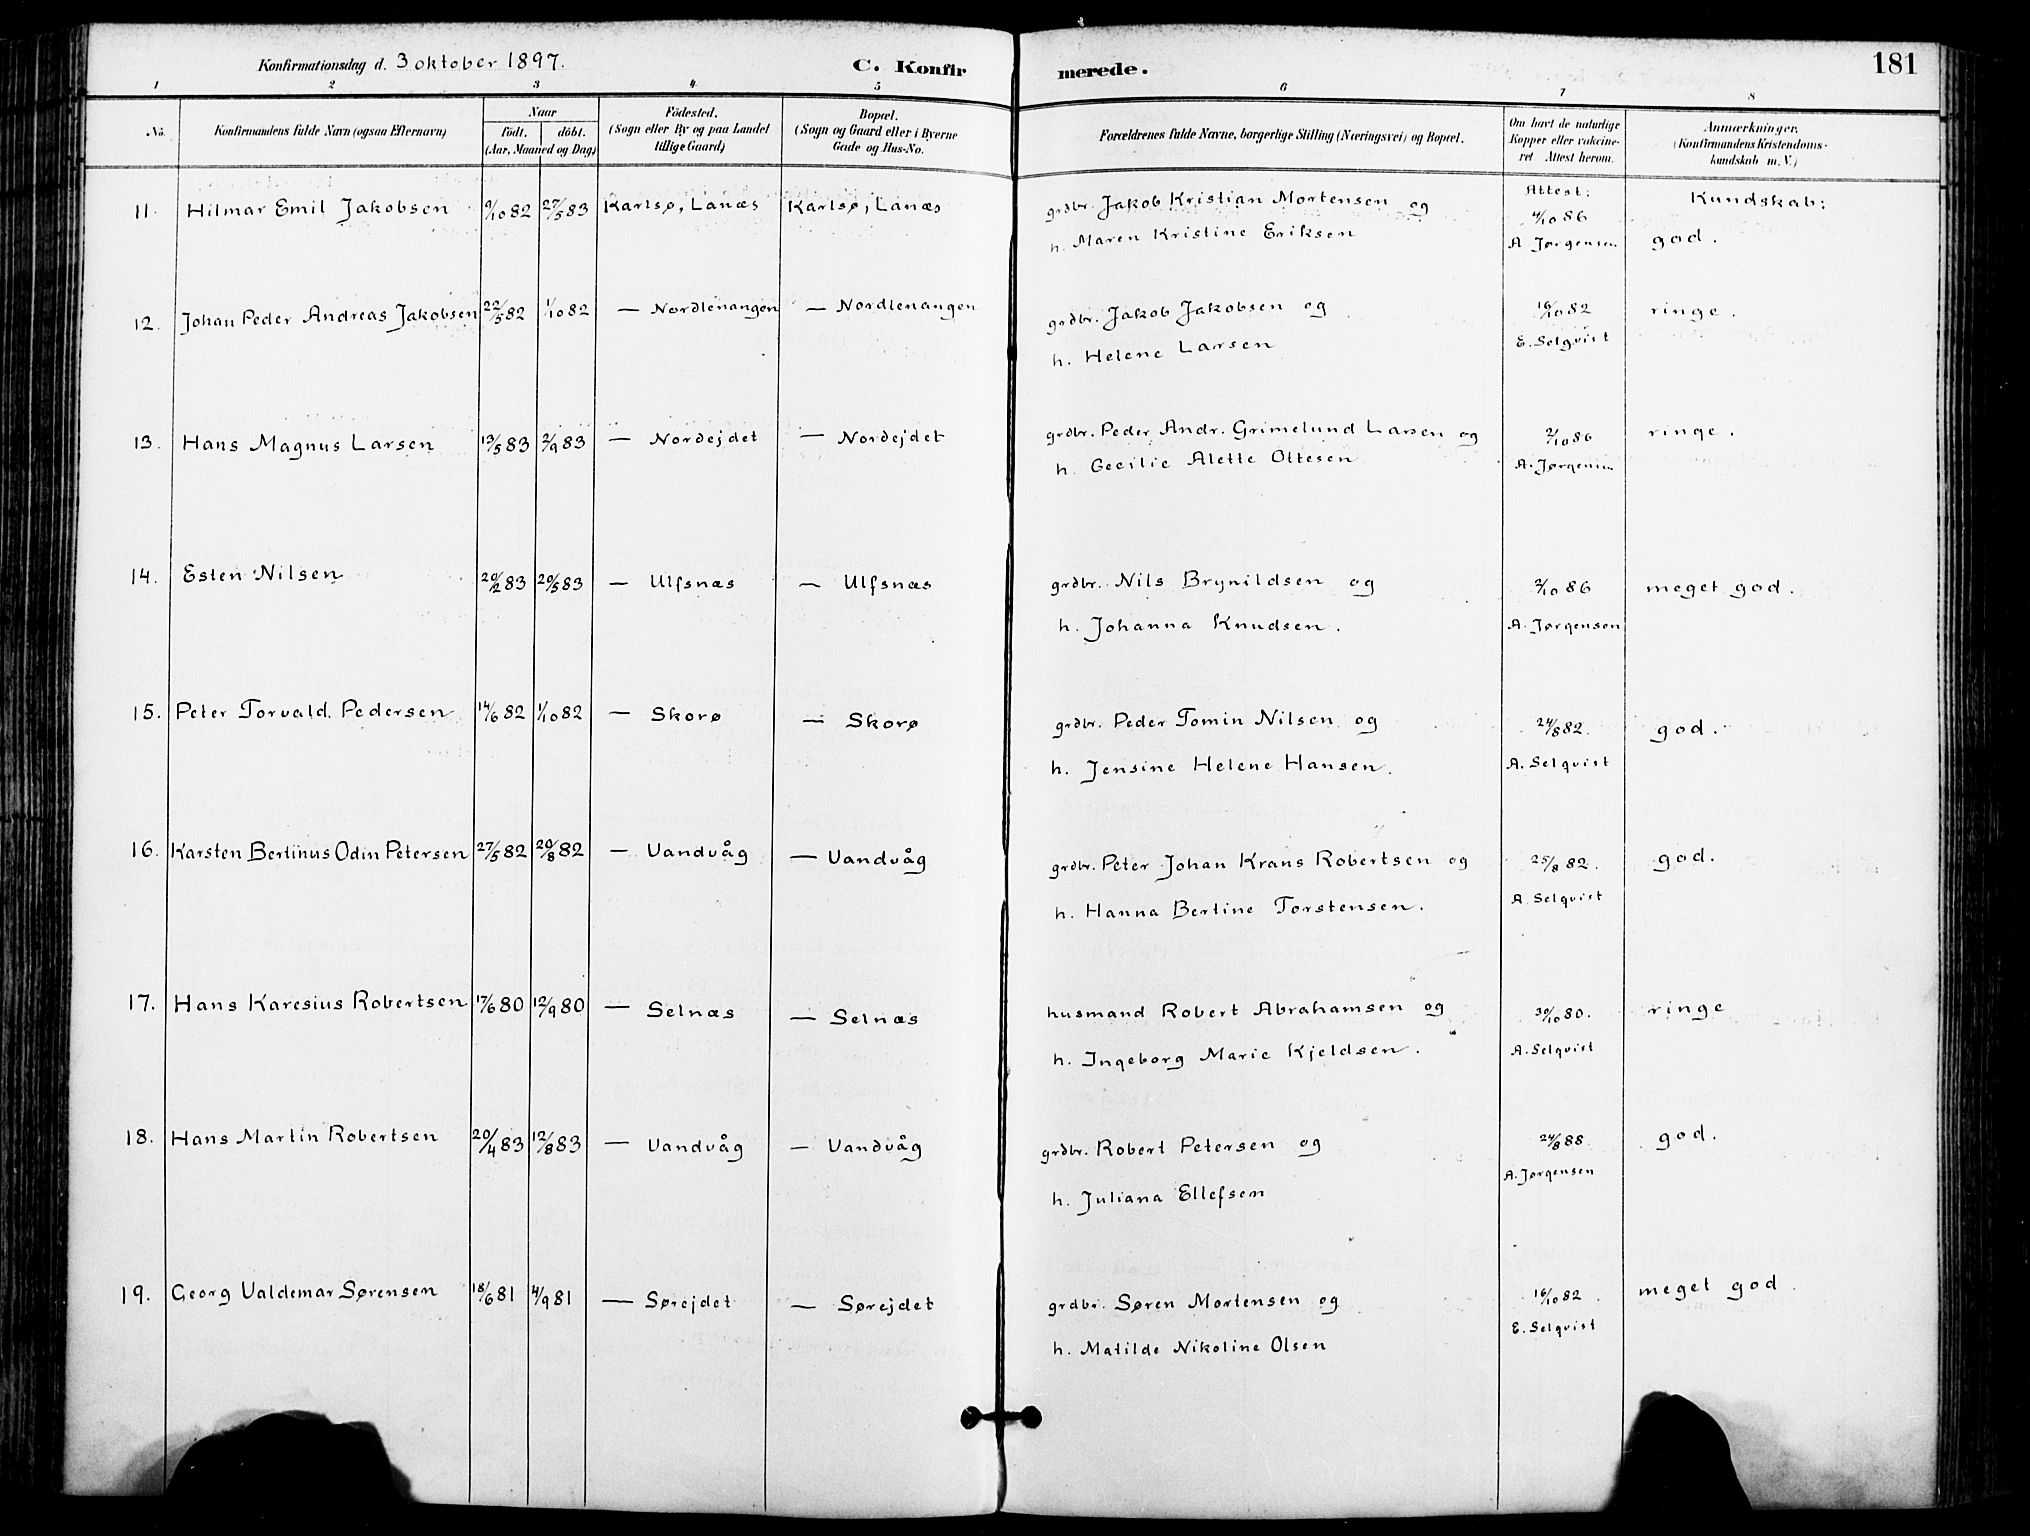 Konfirmationsdag d. 3 oktober 1897.
C. Konfirmerede.
181
1 2 3 4 5 6 7 8
No. Konfirmandens fulde Navn (ogsaa Efternavn) Naar födt. döbt. (Aar, Maaned og Dag) Födested. (Sogn eller By og paa Landet tillige Gaard) Bopæl. (Sogn og Gaard eller i Byerne Gade og Hus-No. Forældrenes fulde Navne, borgerlige Stilling (Næringsvei) og Bopæl. Om havt de naturlige Kopper eller vakcineret Attest herom. Anmærkninger. (Konfirmandens Kristendomskundskab m. V.)
Attest: Kundskab:
11. Hilmar Emil Jakobsen 9/10 82 27/5 83 Karlsø, Lanæs Karlsø, Lanæs grdbr. Jakob Kristian Mortensen og 4/10 86
h. Maren Kristine Eriksen A. Jørgensen god.
12. Johan Peder Andreas Jakobsen 22/5 82 1/10 82 — Nordlenangen — Nordlenangen grdbr. Jakob Jakobsen og 16/10 82 ringe.
h. Helene Larsen E. Selqvist
13. Hans Magnus Larsen 13/5 83 2/9 83 — Nordejdet — Nordejdet grdbr. Peder Andr. Grimelund Larsen og 2/10 86 ringe.
h. Cecilie Alette Ottesen A. Jørgensen
14. Esten Nilsen 20/2 83 20/5 83 — Ulfsnæs — Ulfsnæs grdbr. Nils Brynildsen og 2/10 86 meget god.
h. Johanna Knudsen. A. Jørgensen
15. Peter Torvald. Pedersen 14/6 82 1/10 82 — Skorø — Skorø grdbr. Peder Tomin Nilsen og 24/8 82. god.
h. Jensine Helene Hansen. A. Selqvist
16. Karsten Bertinus Odin Petersen 27/5 82 20/8 82 — Vandvåg — Vandvåg grdbr. Peter Johan Krans Robertsen og 25/8 82. god.
h. Hanna Bertine Torstensen. A. Selqvist
17. Hans Karesius Robertsen 17/6 80 12/9 80 — Selnæs — Selnæs husmand Robert Abrahamsen og 30/10 80. ringe
h. Ingeborg Marie Kjeldsen. A. Selqvist
18. Hans Martin Robertsen 20/4 83 12/8 83 — Vandvåg — Vandvåg grdbr. Robert Petersen og 24/8 88. god.
h. Juliana Ellefsen A. Jørgensen
19. Georg Valdemar Sørensen 18/6 81 4/9 81 — Sørejdet — Sørejdet grdbr. Søren Mortensen og 16/10 82. meget god.
h. Matilde Nikoline Olsen E. Selqvist